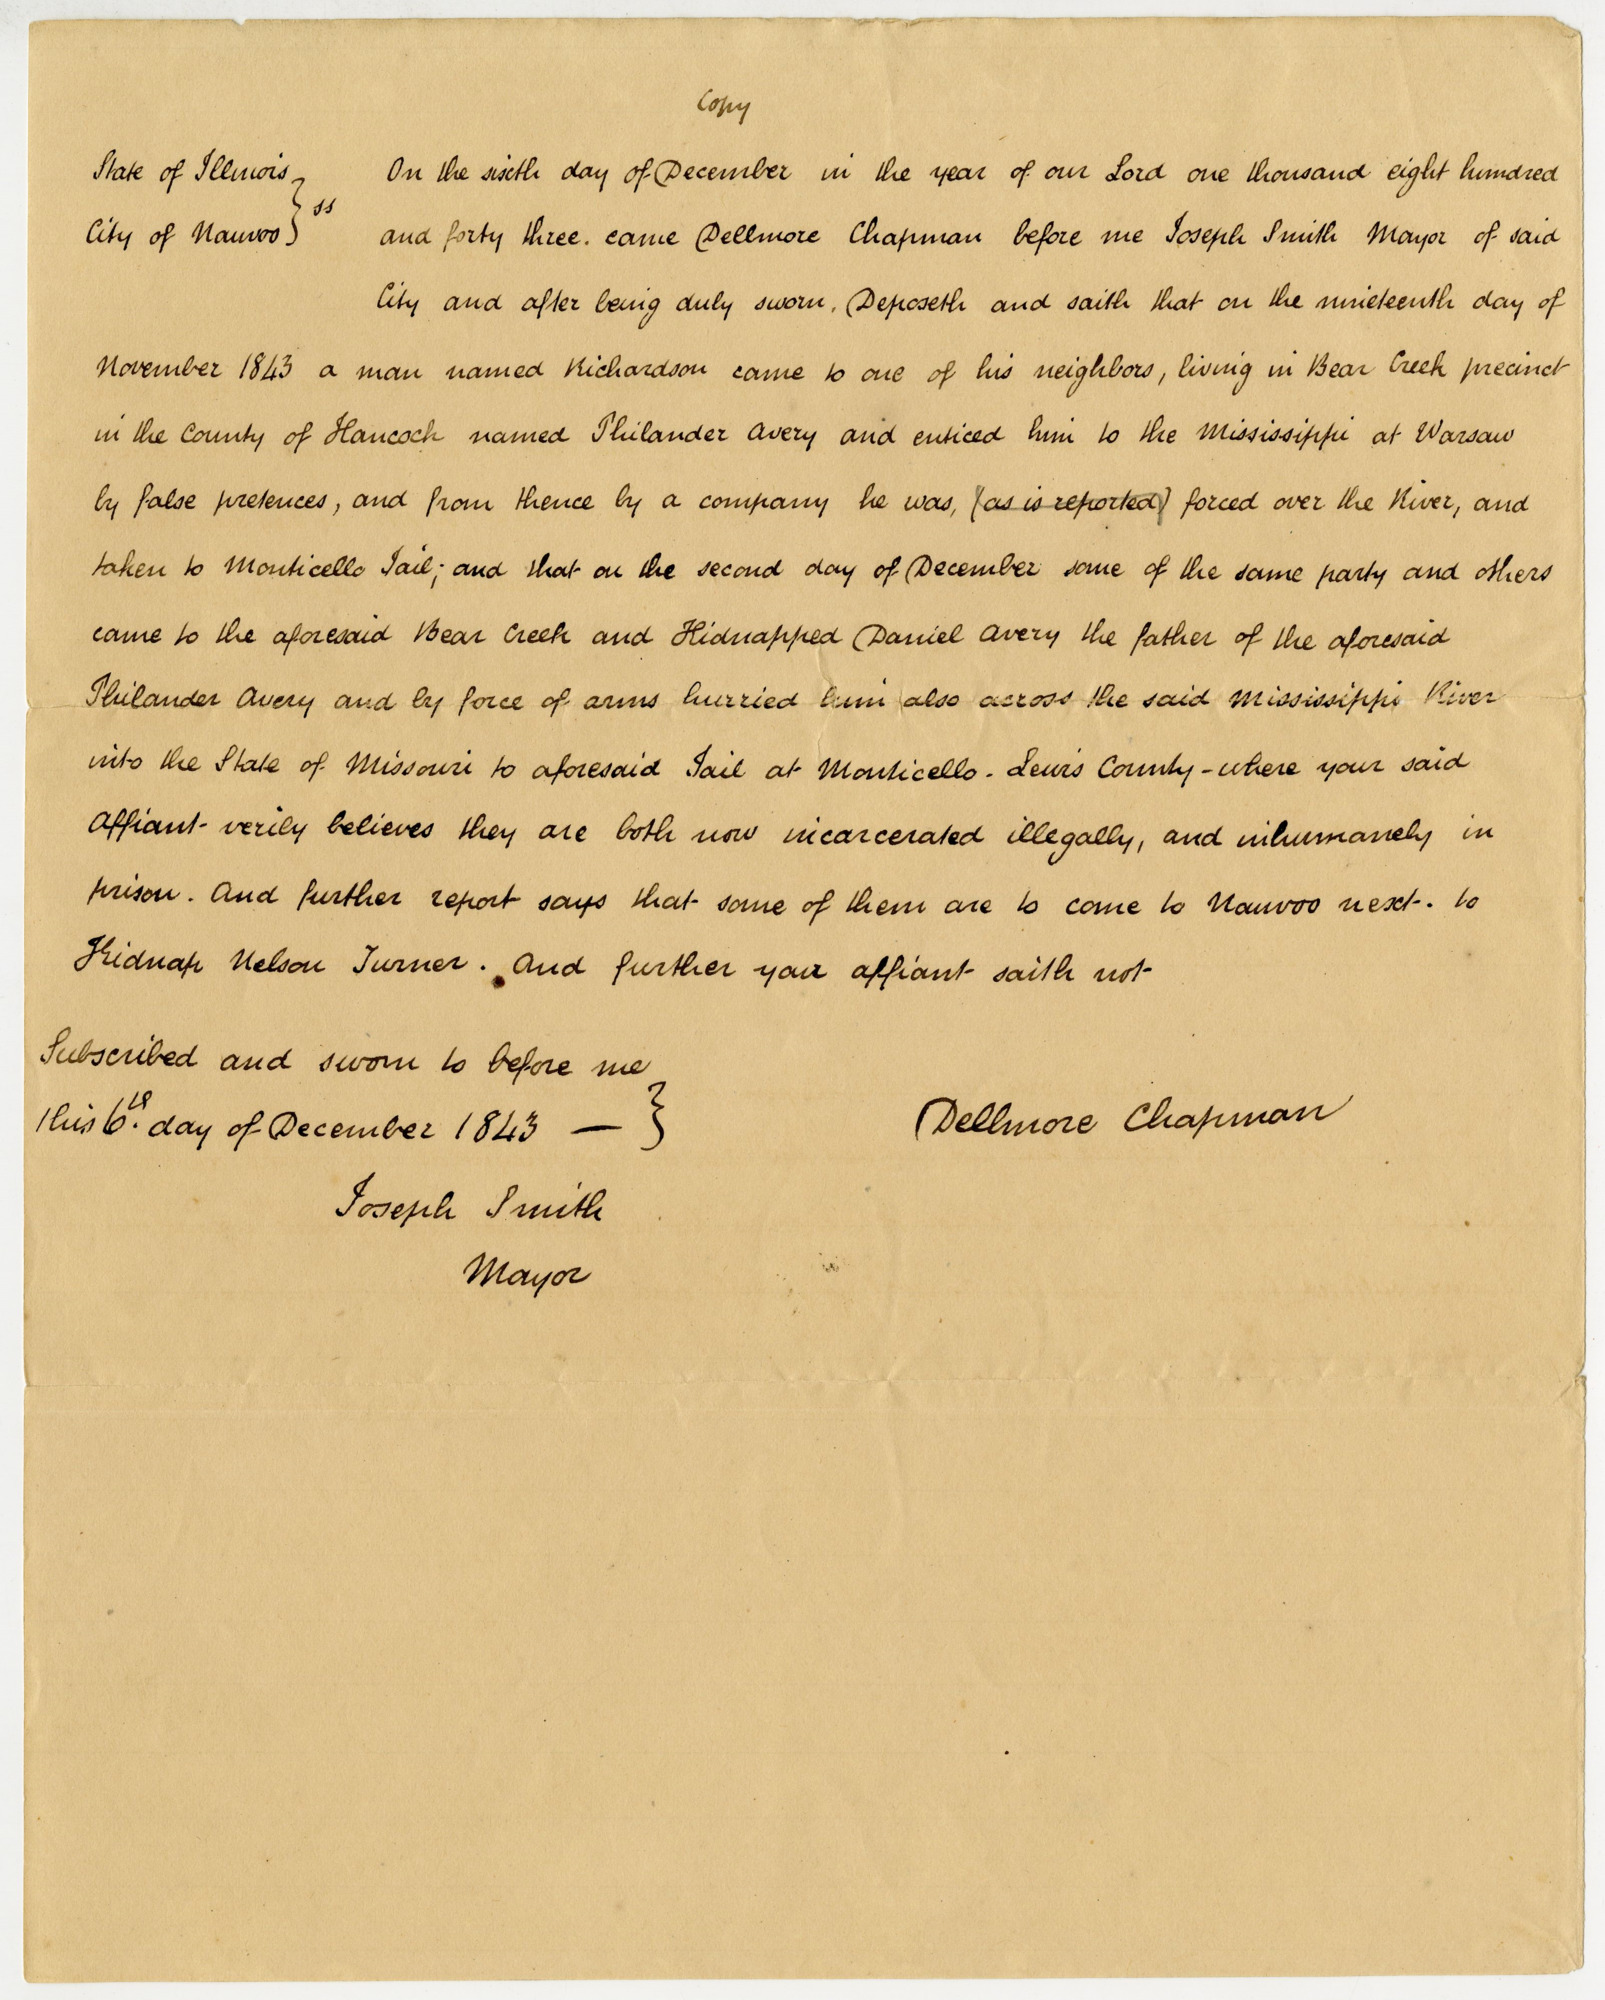 Copy
State of Illinois } ss On the sixth day of December in the year of our Lord one thousand eight hundred
City of Nauvoo } and forty three. came Dellmore Chapman before me Joseph Smith Mayor of said
City and after being duly sworn, Deposeth and saith that on the nineteenth day of
November 1843 a man named Richardson came to one of his neighbors, living in Bear Creek precinct
in the County of Hancock named Philander Avery and enticed him to the Mississippi at Warsaw
by false pretences, and from thence by a company he was, (as is reported) forced over the River, and
taken to Monticello Jail; and that on the second day of December some of the same party and others
came to the aforesaid Bear Creek and Kidnapped Daniel Avery the father of the aforesaid
Philander Avery and by force of arms hurried him also across the said Mississippi River
into the State of Missouri to aforesaid Jail at Monticello - Lewis County - where your said
Affiant verily believes they are both now incarcerated illegally, and inhumanely in
prison. And further report says that some of them are to come to Nauvoo next. to
Kidnap Nelson Turner. And further your affiant saith not
Subscribed and sworn to before me
this 6th. day of December 1843 — } Dellmore Chapman
Joseph Smith
Mayor